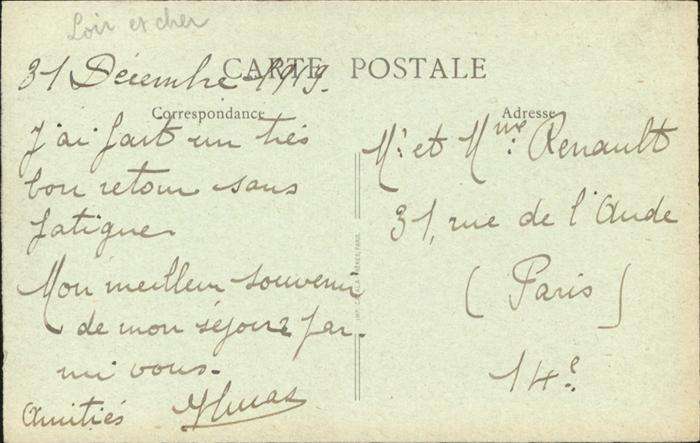 Loir et cher
CARTE POSTALE
31 Décembre 1919.
Correspondance
J'ai fait un très
bon retour sans
fatigue.
Mon meilleur souvenir
de mon séjour par-
mi vous.
Amitiés
Adresse
Mr. et Mme. Renault
31, rue de l'Aude
(Paris)
14e